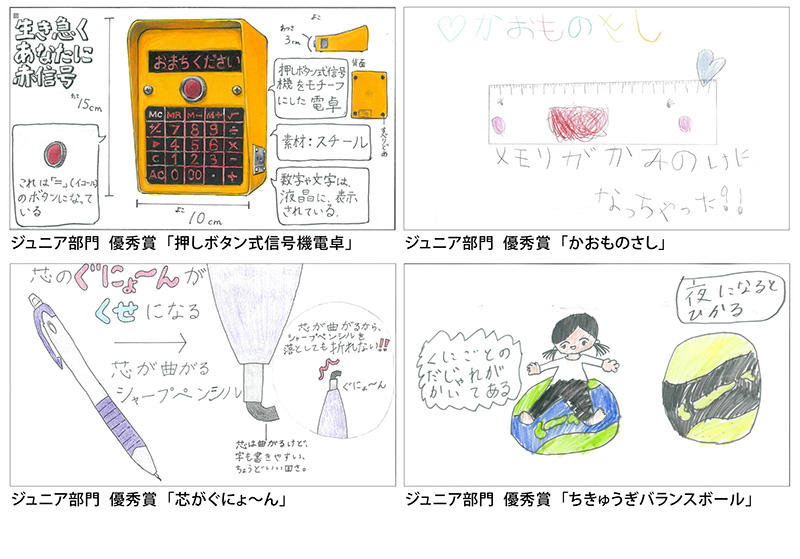 生き急ぐ
あなたに
赤信号
たて
15cm
おまちください
MC MR M− M+ √
+/− 7 8 9 ÷
▶ 4 5 6 ×
C 1 2 3 −
AC 0 00 · +
あつさ
3cm
よこ
背面
押しボタン式信号
機をモチーフ
にした 電卓
素材:スチール
数字や文字は、
液晶に、表示
されている。
これは「=」(イコール)
のボタンになって
いる
よこ
10cm
ジュニア部門 優秀賞 「押しボタン式信号機電卓」
♡かおものさし
メモリがかみのけに
なっちゃった?!
ジュニア部門 優秀賞 「かおものさし」
芯のぐにょ〜んが
くせになる
芯が曲がる
シャープペンシル
芯が曲がるから、
シャープペンシルを
落としても折れない!!
ぐにょ〜ん
芯は曲がるけど、
字も書きやすい、
ちょうどいい固さ。
ジュニア部門 優秀賞 「芯がぐにょ〜ん」
くにごとの
だじゃれが
かいてある
夜になると
ひかる
ジュニア部門 優秀賞 「ちきゅうぎバランスボール」